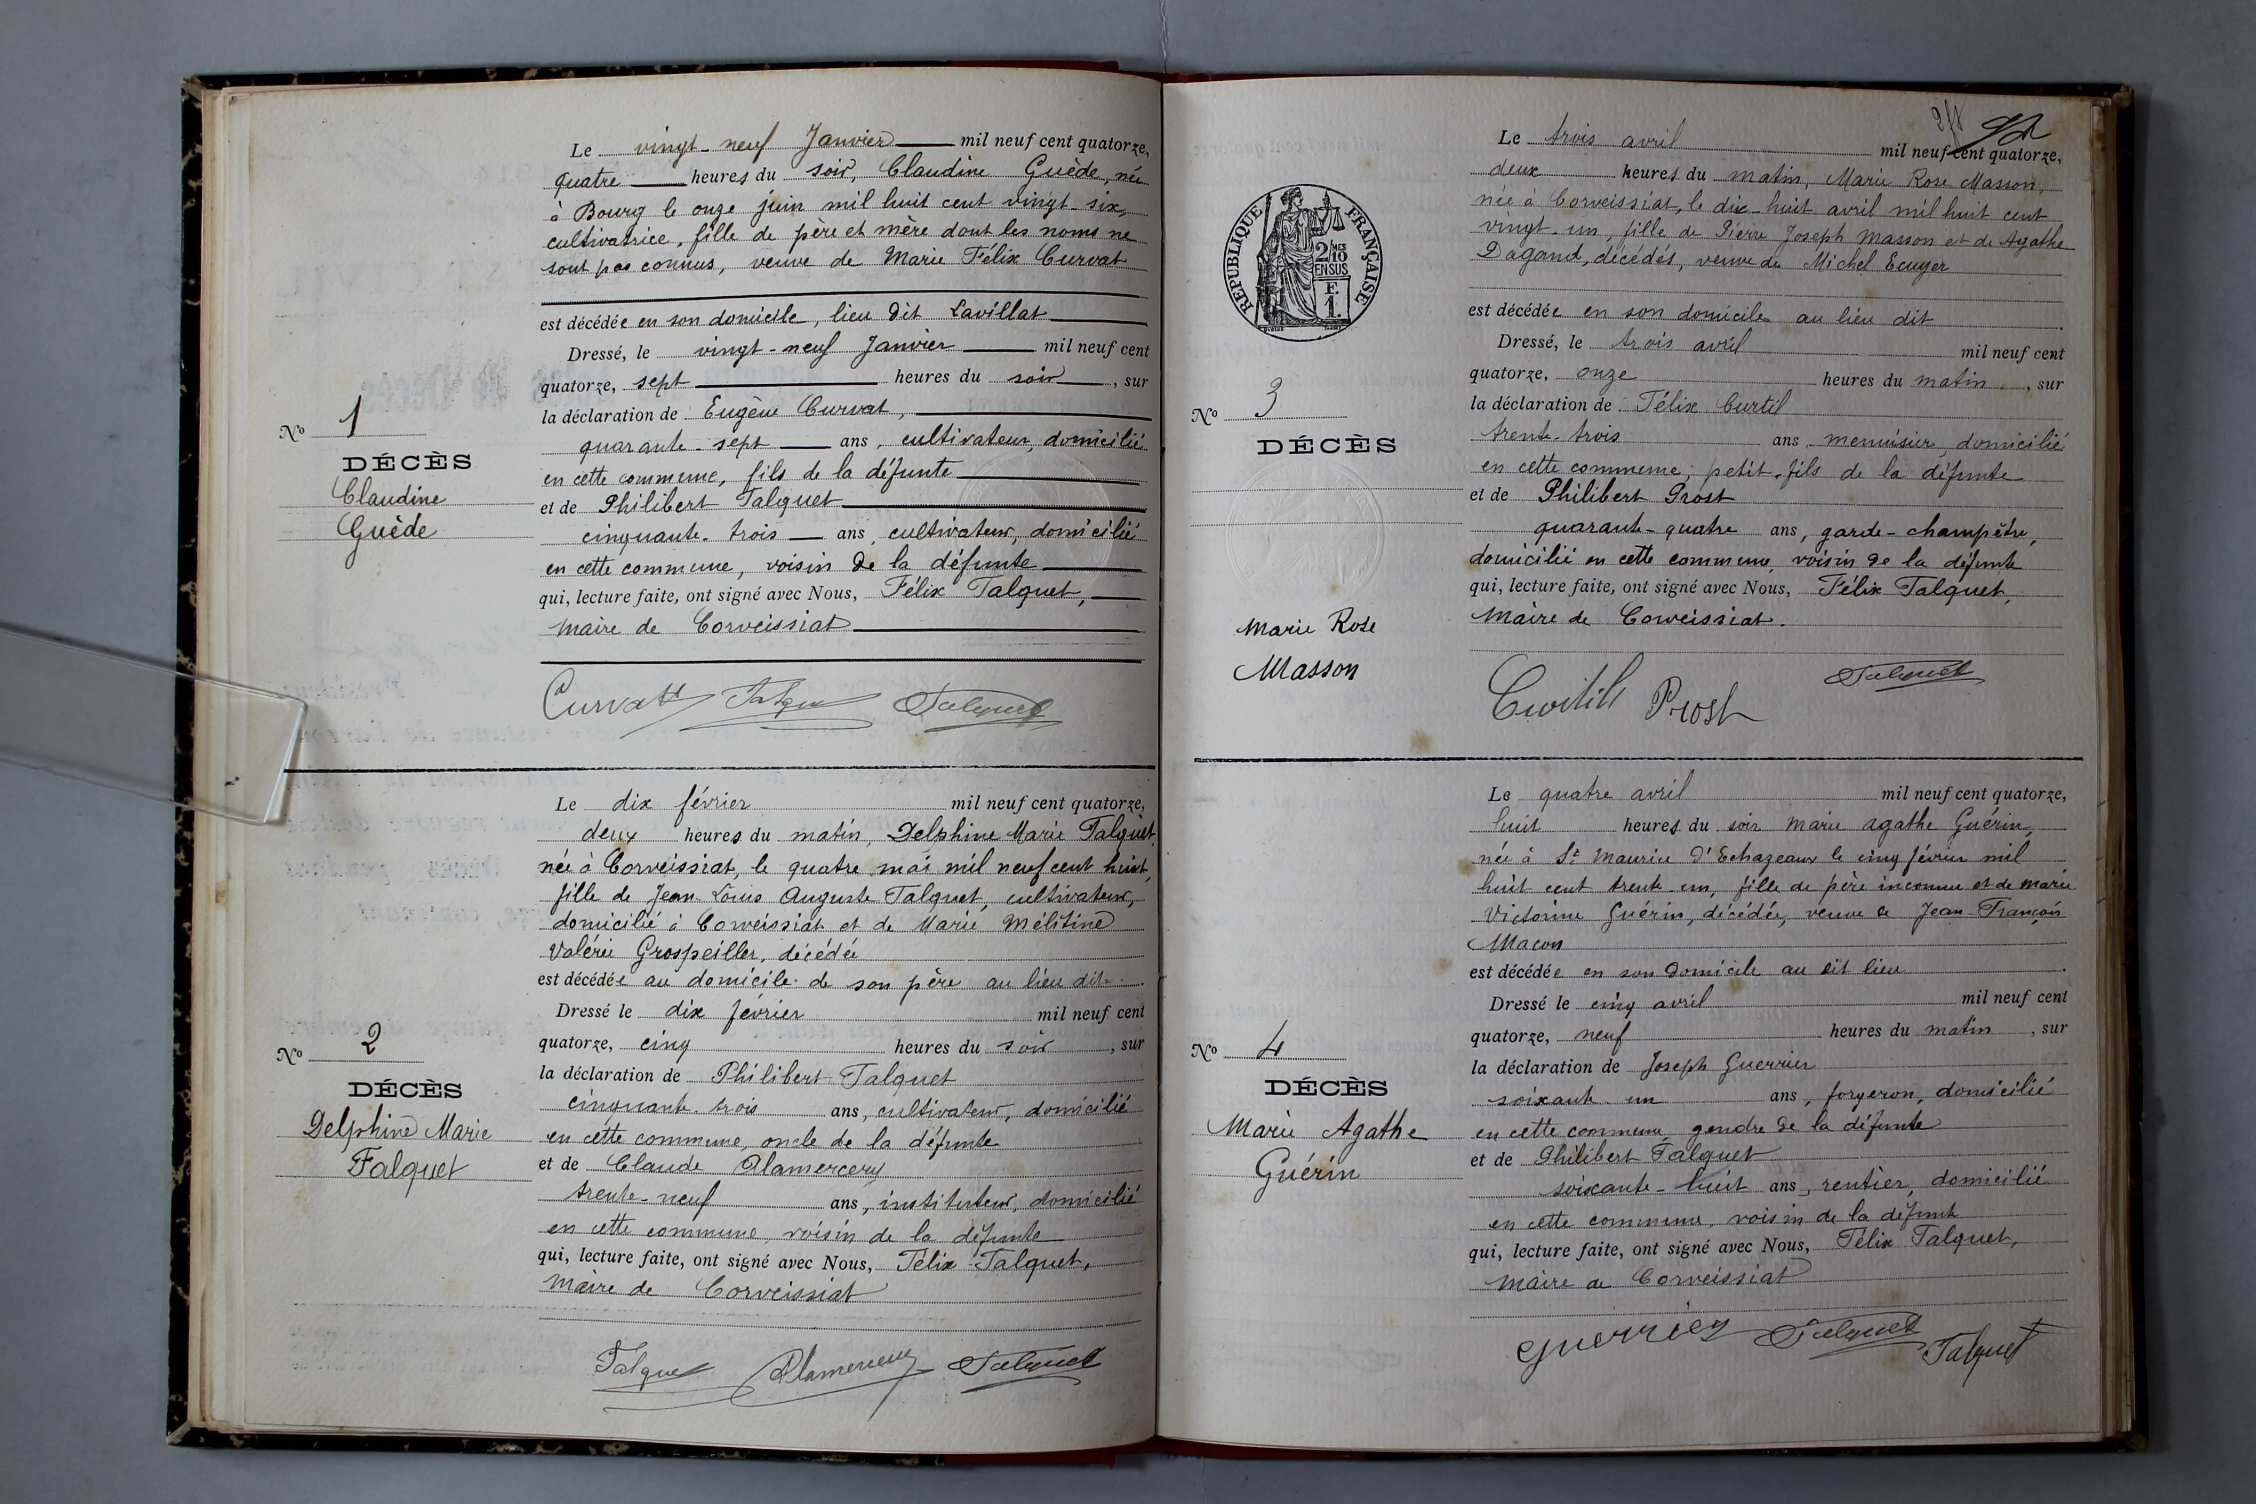 Le vingt-neuf Janvier mil neuf cent quatorze,
quatre heures du soir, Claudine Guède, née
à Bourg le onze juin mil huit cent vingt-six,
cultivatrice, fille de père et mère dont les noms ne
sont pas connus, veuve de Marie Félix Curvat
est décédée en son domicile, lieu dit Lavillat
Dressé, le vingt-neuf Janvier mil neuf cent
quatorze, sept heures du soir, sur
la déclaration de Eugène Curvat,
quarante-sept ans, cultivateur, domicilié
en cette commune, fils de la défunte
et de Philibert Falquet
cinquante-trois ans, cultivateur, domicilié
en cette commune, voisin de la défunte
qui, lecture faite, ont signé avec Nous, Félix Falquet,
Maire de Corveissiat
Nº 1
DÉCÈS
Claudine
Guède
Curvat Falquet Falquet
Le dix février mil neuf cent quatorze,
deux heures du matin, Delphine Marie Falquet,
née à Corveissiat, le quatre mai mil neuf cent huit,
fille de Jean Louis Auguste Falquet, cultivateur,
domicilié à Corveissiat et de Marie Mélitine
Valérie Grospeiller, décédée
est décédée au domicile de son père au lieu dit
Dressé le dix février mil neuf cent
quatorze, cinq heures du soir, sur
la déclaration de Philibert Falquet
cinquante-trois ans, cultivateur, domicilié
en cette commune, oncle de la défunte
et de Claude Alamercery
trente-neuf ans, instituteur, domicilié
en cette commune, voisin de la défunte
qui, lecture faite, ont signé avec Nous, Félix Falquet,
Maire de Corveissiat
Nº 2
DÉCÈS
Delphine Marie
Falquet
Falquet Alamercery Falquet
RÉPUBLIQUE FRANÇAISE
2/10
EN SUS
F.
1.
Le trois avril mil neuf cent quatorze,
deux heures du matin, Marie Rose Masson,
née à Corveissiat, le dix-huit avril mil huit cent
vingt-un, fille de Pierre Joseph Masson et de Agathe
Dagand, décédés, veuve de Michel Ecuyer
est décédée en son domicile au lieu dit
Dressé, le trois avril mil neuf cent
quatorze, onze heures du matin, sur
la déclaration de Félix Curtil
trente-trois ans menuisier, domicilié
en cette commune, petit-fils de la défunte
et de Philibert Prost
quarante-quatre ans, garde-champêtre,
domicilié en cette commune, voisin de la défunte
qui, lecture faite, ont signé avec Nous, Félix Falquet,
Maire de Corveissiat.
Nº 3
DÉCÈS
Marie Rose
Masson
Curtil Prost Falquet
Le quatre avril mil neuf cent quatorze,
huit heures du soir Marie Agathe Guérin,
née à St Maurice d'Echazeaux le cinq février mil
huit cent trente-un, fille de père inconnu et de Marie
Victorine Guérin, décédée, veuve de Jean-François
Macon
est décédée en son domicile au dit lieu
Dressé le cinq avril mil neuf cent
quatorze, neuf heures du matin, sur
la déclaration de Joseph Guerrier
soixante-un ans, forgeron, domicilié
en cette commune, gendre de la défunte
et de Philibert Falquet
soixante-huit ans, rentier, domicilié
en cette commune, voisin de la défunte
qui, lecture faite, ont signé avec Nous, Félix Falquet,
Maire de Corveissiat
Nº 4
DÉCÈS
Marie Agathe
Guérin
Guerrier Falquet Falquet